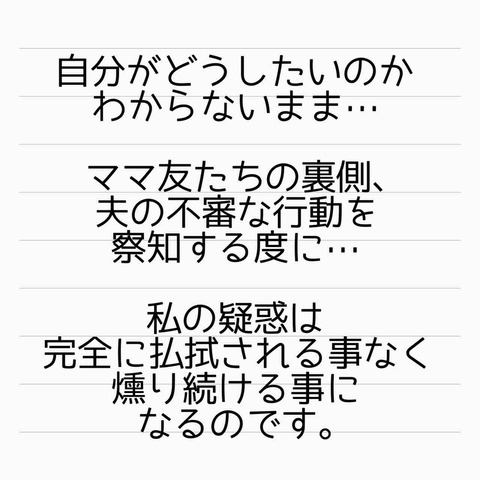 自分がどうしたいのか
わからないまま…
ママ友たちの裏側、
夫の不審な行動を
察知する度に…
私の疑惑は
完全に払拭される事なく
燻り続ける事に
なるのです。